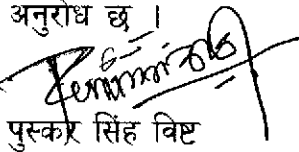 अनुरोध छ ।
पुस्कर सिंह विष्ट